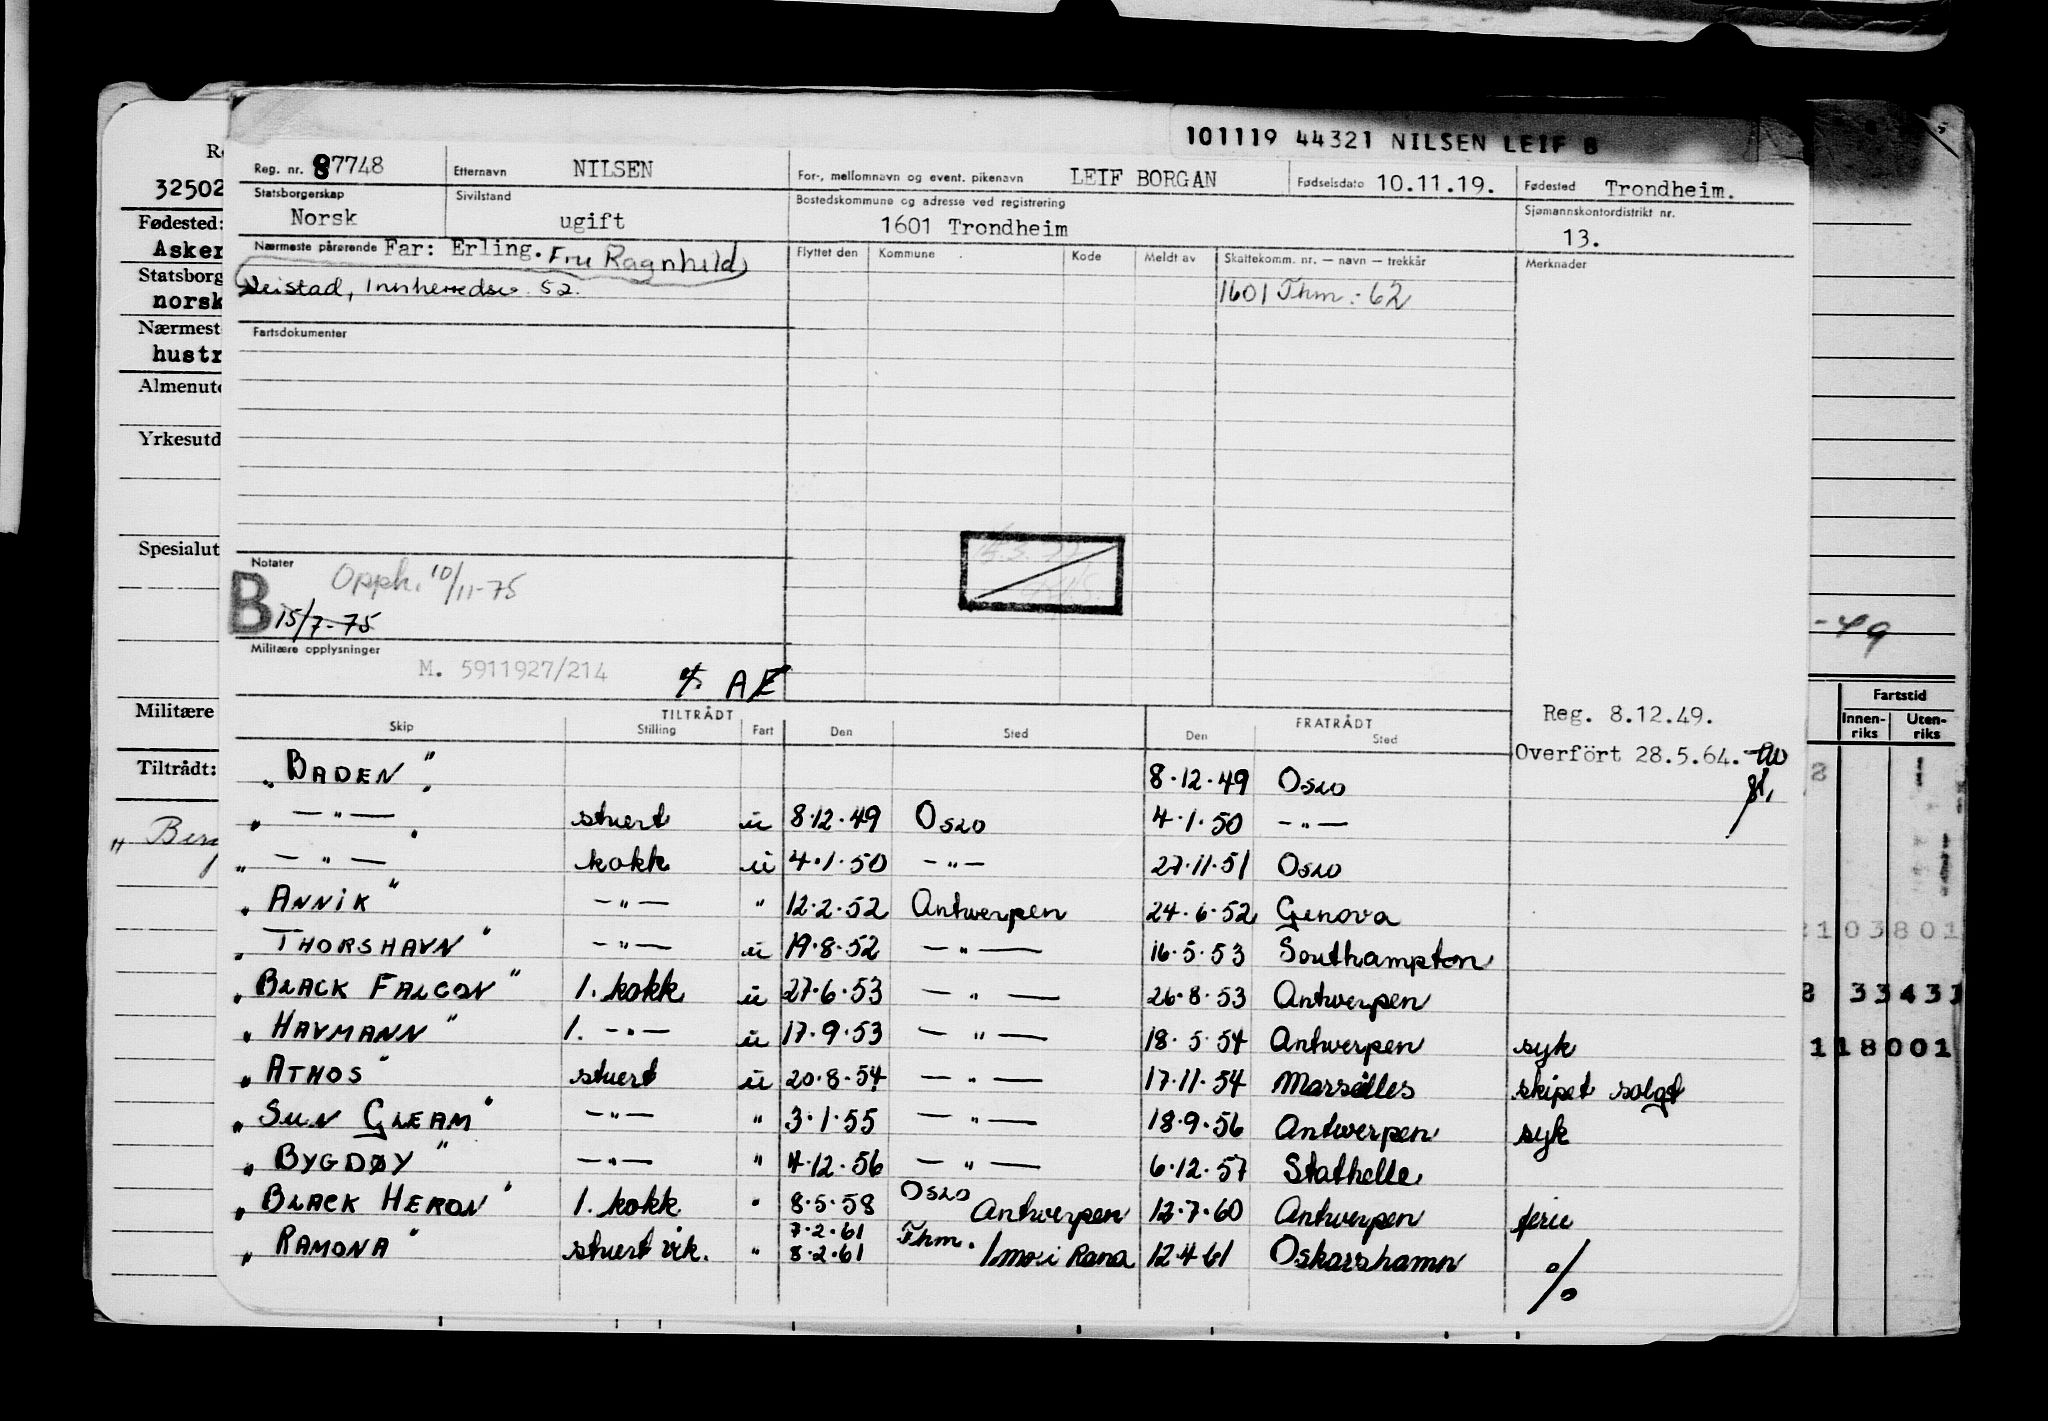 101119 44321 NILSEN LEIF B
Reg. nr. 87748 Etternavn NILSEN For-, mellomnavn og event. pikenavn LEIF BORGAN Fødselsdato 10.11.19. Fødested Trondheim.
Statsborgerskap Norsk Sivilstand ugift Bostedskommune og adresse ved registrering 1601 Trondheim Sjømannskontordistrikt nr. 13.
Nærmeste pårørende Far: Erling. Fru Ragnhild Flyttet den Kommune Kode Meldt av Skattekomm. nr. — navn — trekkår Merknader
Innherredsv. 52. 1601 Thm.: 62
Fartsdokumenter
Notater
Opph. 10/11-75
B 15/7-75
Militære opplysninger
M. 5911927/214 AE
Reg. 8.12.49.
Overfört 28.5.64.
TILTRÅDT FRATRÅDT
Skip Stilling Fart Den Sted Den Sted
„ BADEN " 8.12.49 Oslo
„ — " — stuert u 8.12.49 Oslo 4.1.50 — " —
„ — " — kokk u 4.1.50 — " — 27.11.51 Oslo
„ ANNIK " — " — " 12.2.52 Antwerpen 24.6.52 Genova
„ THORSHAVN " — " — u 19.8.52 — " — 16.5.53 Southampton
„ BLACK FALCON " 1. kokk u 27.6.53 — " — 26.8.53 Antwerpen
„ HAVMANN " 1. — " — u 17.9.53 — " — 18.5.54 Antwerpen syk
„ ATHOS " stuert u 20.8.54 — " — 17.11.54 Marseilles skipet solgt
„ SUN GLEAM " — " — " 3.1.55 — " — 18.9.56 Antwerpen syk
„ BYGDØY " — " — " 4.12.56 — " — 6.12.57 Stathelle
„ BLACK HERON " 1. kokk " 8.5.58 Oslo Antwerpen 12.7.60 Antwerpen ferie
„ RAMONA " stuert vik. " 7.2.61 8.2.61 Thm. / mo i Rana 12.4.61 Oskarshamn %
32502
Fødested:
Asker
Statsborg
norsk
Nærmest
hustr
Almenutd
Yrkesutd
Spesialut
Militære
Tiltrådt:
„ Berg
-49
Fartstid
Innen-riks Uten-riks
2103801
33431
118001